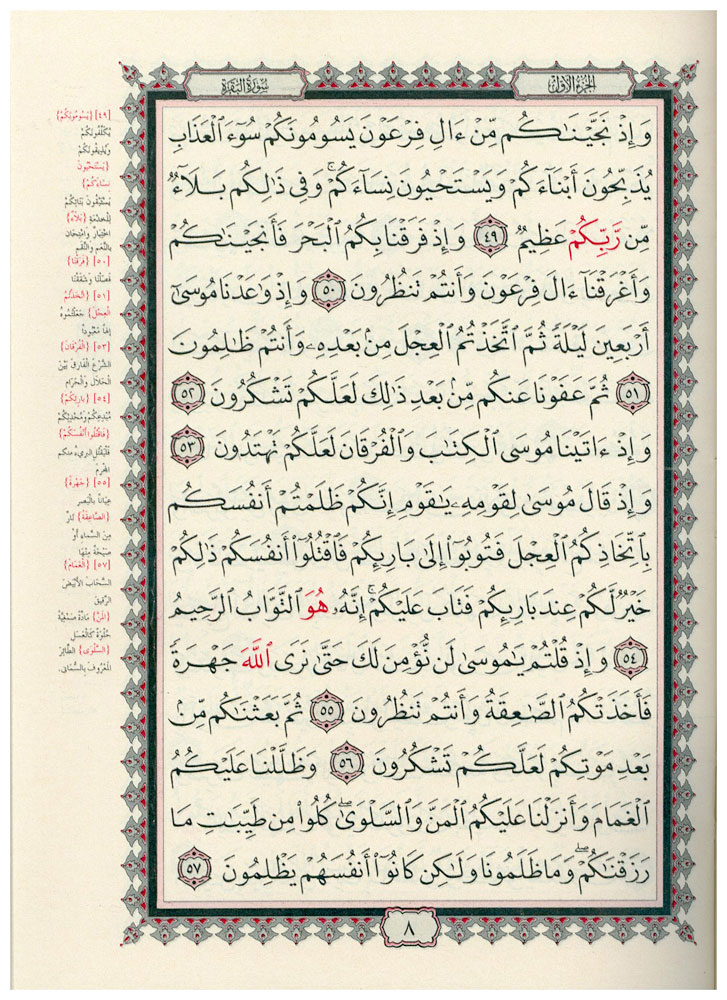 الجزء الأول
سورة البقرة
وَإِذْ نَجَّيْنَٰكُم مِّنْ ءَالِ فِرْعَوْنَ يَسُومُونَكُمْ سُوٓءَ ٱلْعَذَابِ
يُذَبِّحُونَ أَبْنَآءَكُمْ وَيَسْتَحْيُونَ نِسَآءَكُمْ ۚ وَفِى ذَٰلِكُم بَلَآءٌ
مِّن رَّبِّكُمْ عَظِيمٌ ٤٩ وَإِذْ فَرَقْنَا بِكُمُ ٱلْبَحْرَ فَأَنجَيْنَٰكُمْ
وَأَغْرَقْنَآ ءَالَ فِرْعَوْنَ وَأَنتُمْ تَنظُرُونَ ٥٠ وَإِذْ وَٰعَدْنَا مُوسَىٰٓ
أَرْبَعِينَ لَيْلَةً ثُمَّ ٱتَّخَذْتُمُ ٱلْعِجْلَ مِنۢ بَعْدِهِۦ وَأَنتُمْ ظَٰلِمُونَ
٥١ ثُمَّ عَفَوْنَا عَنكُم مِّنۢ بَعْدِ ذَٰلِكَ لَعَلَّكُمْ تَشْكُرُونَ ٥٢
وَإِذْ ءَاتَيْنَا مُوسَى ٱلْكِتَٰبَ وَٱلْفُرْقَانَ لَعَلَّكُمْ تَهْتَدُونَ ٥٣
وَإِذْ قَالَ مُوسَىٰ لِقَوْمِهِۦ يَٰقَوْمِ إِنَّكُمْ ظَلَمْتُمْ أَنفُسَكُم
بِٱتِّخَاذِكُمُ ٱلْعِجْلَ فَتُوبُوٓا۟ إِلَىٰ بَارِئِكُمْ فَٱقْتُلُوٓا۟ أَنفُسَكُمْ ذَٰلِكُمْ
خَيْرٌ لَّكُمْ عِندَ بَارِئِكُمْ فَتَابَ عَلَيْكُمْ ۚ إِنَّهُۥ هُوَ ٱلتَّوَّابُ ٱلرَّحِيمُ
٥٤ وَإِذْ قُلْتُمْ يَٰمُوسَىٰ لَن نُّؤْمِنَ لَكَ حَتَّىٰ نَرَى ٱللَّهَ جَهْرَةً
فَأَخَذَتْكُمُ ٱلصَّٰعِقَةُ وَأَنتُمْ تَنظُرُونَ ٥٥ ثُمَّ بَعَثْنَٰكُم مِّنۢ
بَعْدِ مَوْتِكُمْ لَعَلَّكُمْ تَشْكُرُونَ ٥٦ وَظَلَّلْنَا عَلَيْكُمُ
ٱلْغَمَامَ وَأَنزَلْنَا عَلَيْكُمُ ٱلْمَنَّ وَٱلسَّلْوَىٰ ۖ كُلُوا۟ مِن طَيِّبَٰتِ مَا
رَزَقْنَٰكُمْ ۖ وَمَا ظَلَمُونَا وَلَٰكِن كَانُوٓا۟ أَنفُسَهُمْ يَظْلِمُونَ ٥٧
٨
[٤٩] {يَسُومُونَكُمْ}
يُكَلِّفُونَكُمْ
وَيُذِيقُونَكُمْ
{يَسْتَحْيُونَ
نِسَاءَكُمْ}
يَسْتَبْقُونَ بَنَاتِكُمْ
لِلْخِدْمَةِ {بَلَاءٌ}
اخْتِبَارٌ وَامْتِحَانٌ
بِالنِّعَمِ وَالنِّقَمِ
[٥٠] {فَرَقْنَا}
فَصَلْنَا وَشَقَقْنَا
[٥١] {اتَّخَذْتُمُ
الْعِجْلَ} جَعَلْتُمُوهُ
إِلَهًا مَعْبُودًا
[٥٣] {الْفُرْقَانَ}
الشَّرْعَ الْفَارِقَ بَيْنَ
الْحَلَالِ وَالْحَرَامِ
[٥٤] {بَارِئِكُمْ}
مُبْدِعِكُمْ وَمُحْدِثِكُمْ
{فَاقْتُلُوا أَنْفُسَكُمْ}
فَلْيَقْتُلِ الْبَرِيءُ مِنكُمُ
الْمُجْرِمَ
[٥٥] {جَهْرَةً}
عِيَانًا بِالْبَصَرِ
{الصَّاعِقَةُ} نَارٌ
مِنَ السَّمَاءِ أَوْ
صَيْحَةٌ مِنْهَا
[٥٧] {الْغَمَامَ}
السَّحَابَ الْأَبْيَضَ
الرَّقِيقَ
{الْمَنَّ} مَادَّةٌ صَمْغِيَّةٌ
حُلْوَةٌ كَالْعَسَلِ
{السَّلْوَى} الطَّائِرَ
الْمَعْرُوفَ بِالسُّمَانَى.